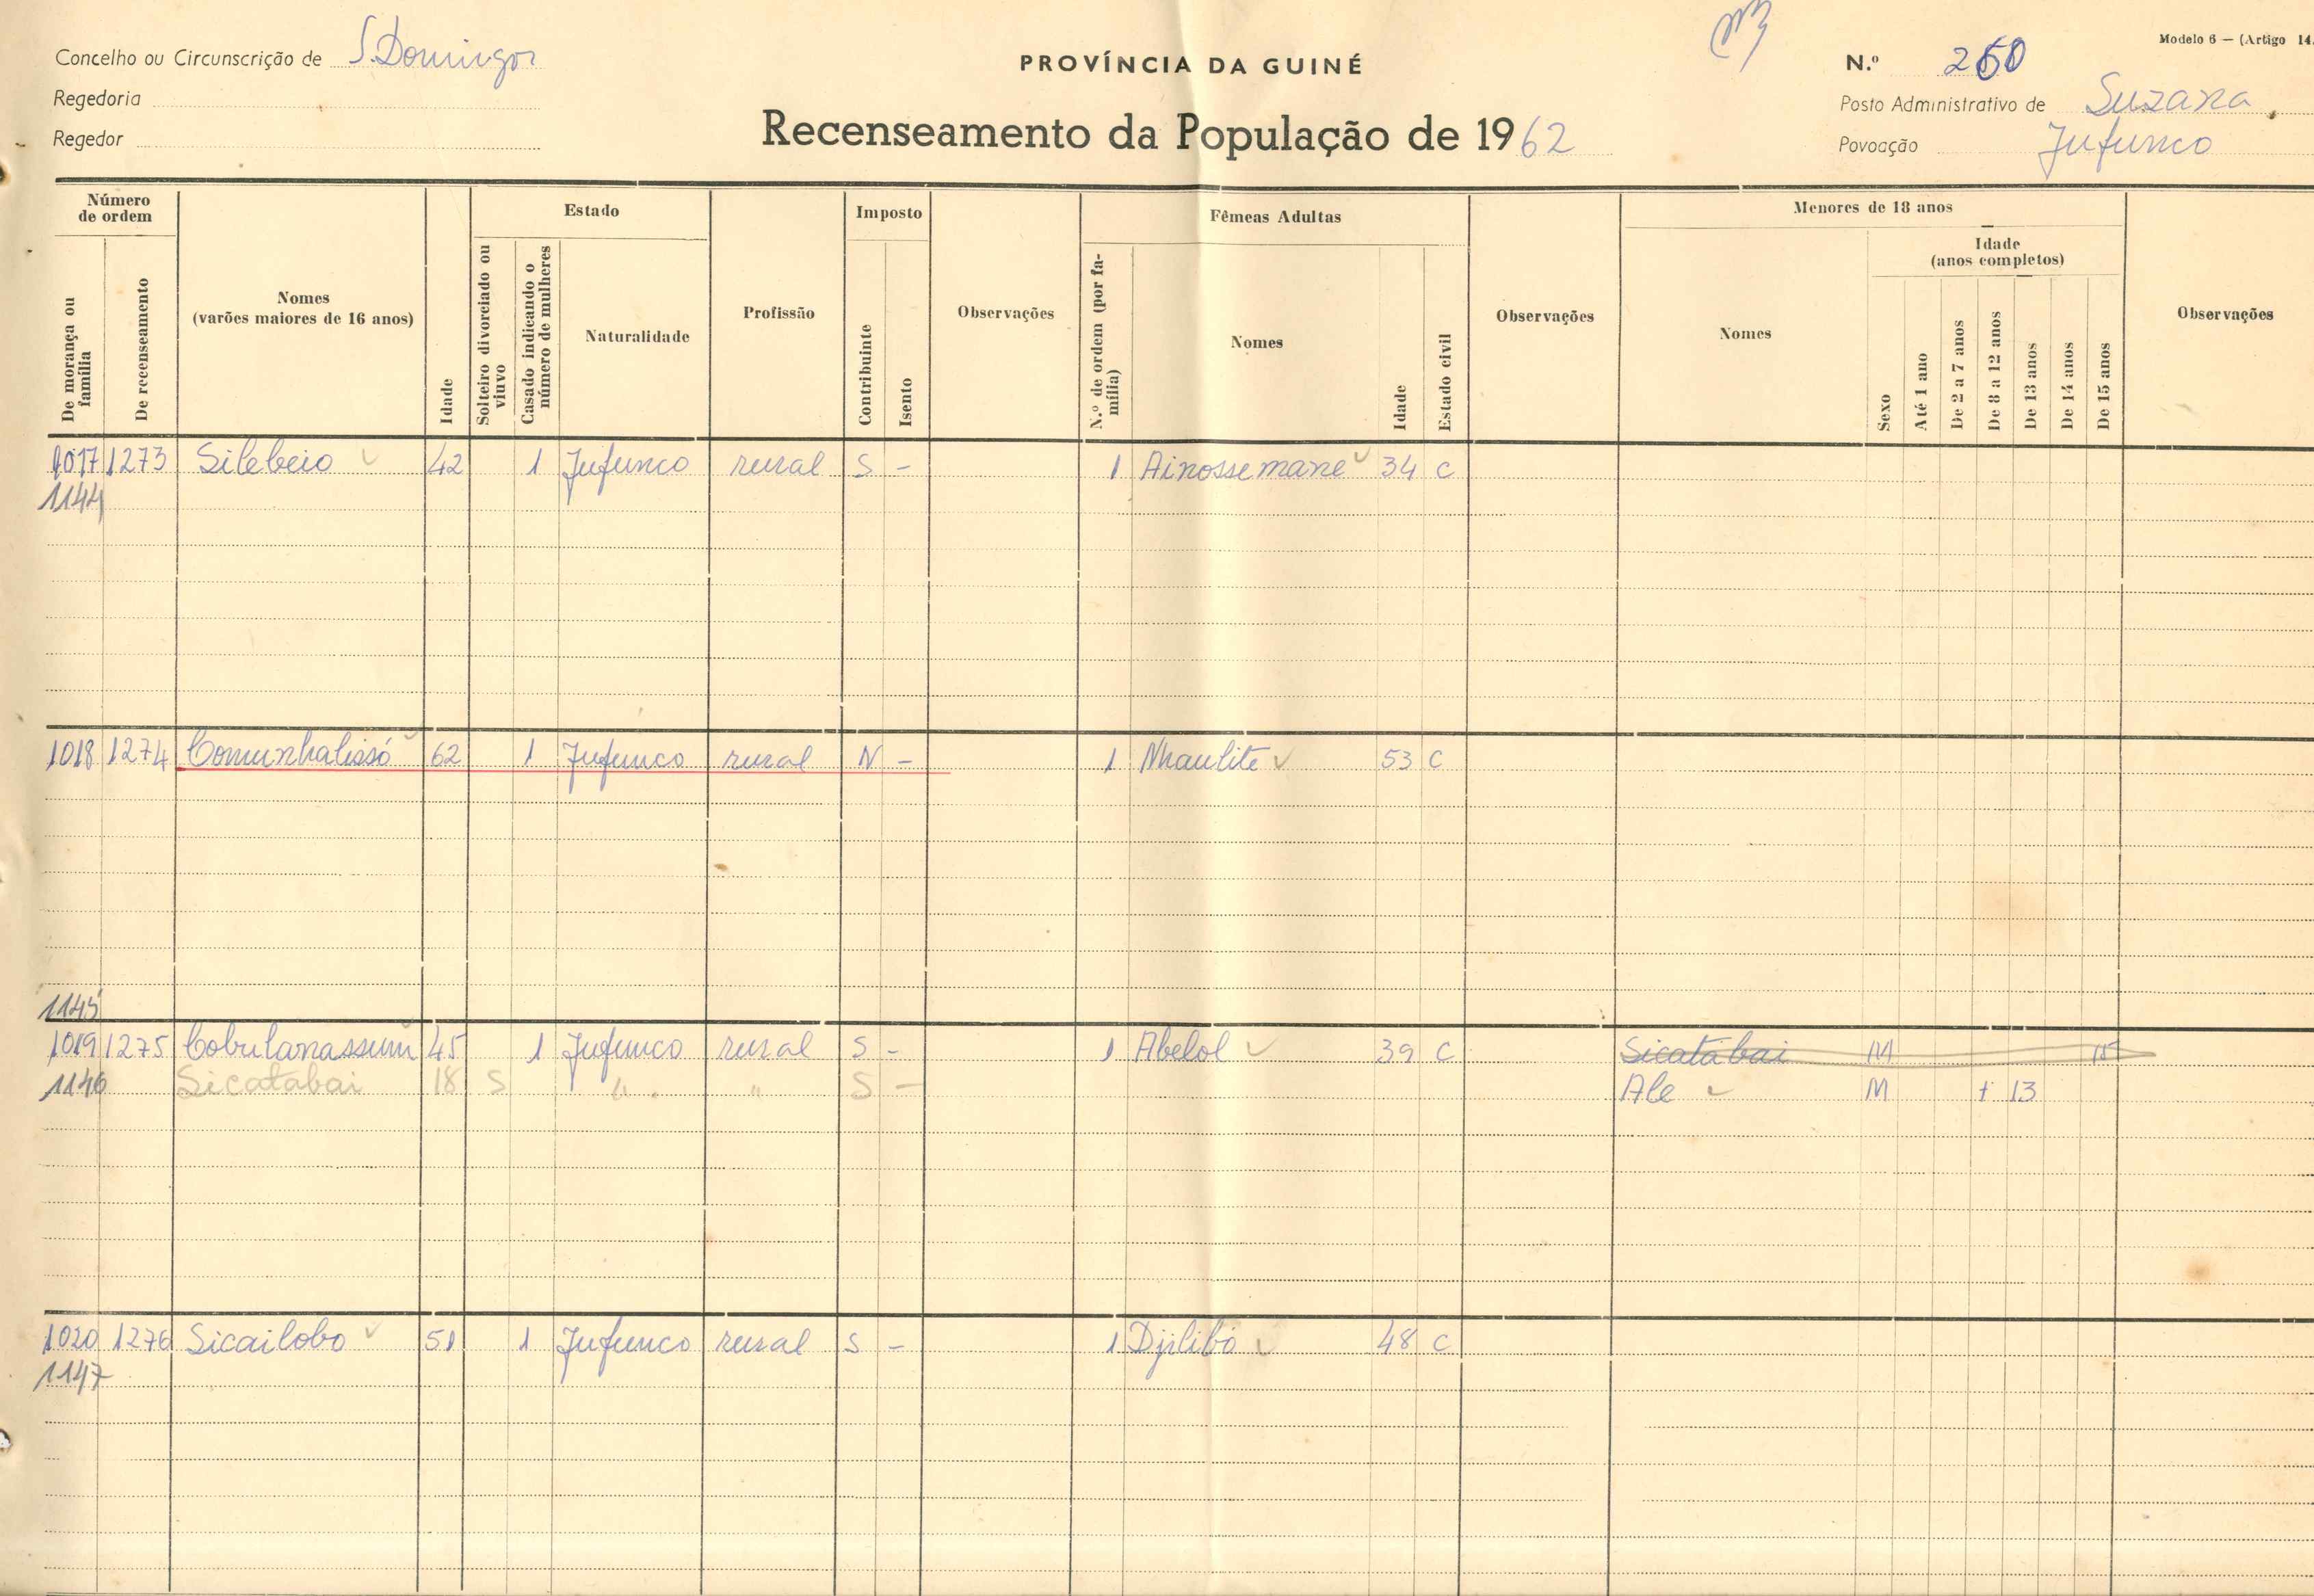 Modelo 6 — (Artigo 14.
Concelho ou Circunscrição de S. Domingos
PROVÍNCIA DA GUINÉ
N.º 260
Regedoria
Posto Administrativo de Suzana
Regedor
Recenseamento da População de 1962
Povoação Jufunco
Número de ordem
De morança ou família
De recenseamento
Nomes (varões maiores de 16 anos)
Idade
Estado
Solteiro divorciado ou viuvo
Casado indicando o número de mulheres
Naturalidade
Profissão
Imposto
Contribuinte
Isento
Observações
Fêmeas Adultas
N.º de ordem (por família)
Nomes
Idade
Estado civil
Observações
Menores de 18 anos
Nomes
Sexo
Idade (anos completos)
Até 1 ano
De 2 a 7 anos
De 8 a 12 anos
De 13 anos
De 14 anos
De 15 anos
Observações
1017 1273 Silebeio 42 1 Jufunco rural S - 1 Ainossemane 34 C
1144
1018 1274 Comunhalissó 62 1 Jufunco rural N - 1 Nhaulite 53 C
1145
1019 1275 Cobulanassum 45 1 Jufunco rural S - 1 Abelol 39 C Sicatabai M 15
1146 Sicatabai 18 S " " S - Ale M + 13
1020 1276 Sicailobo 51 1 Jufunco rural S - 1 Djilibó 48 C
1147